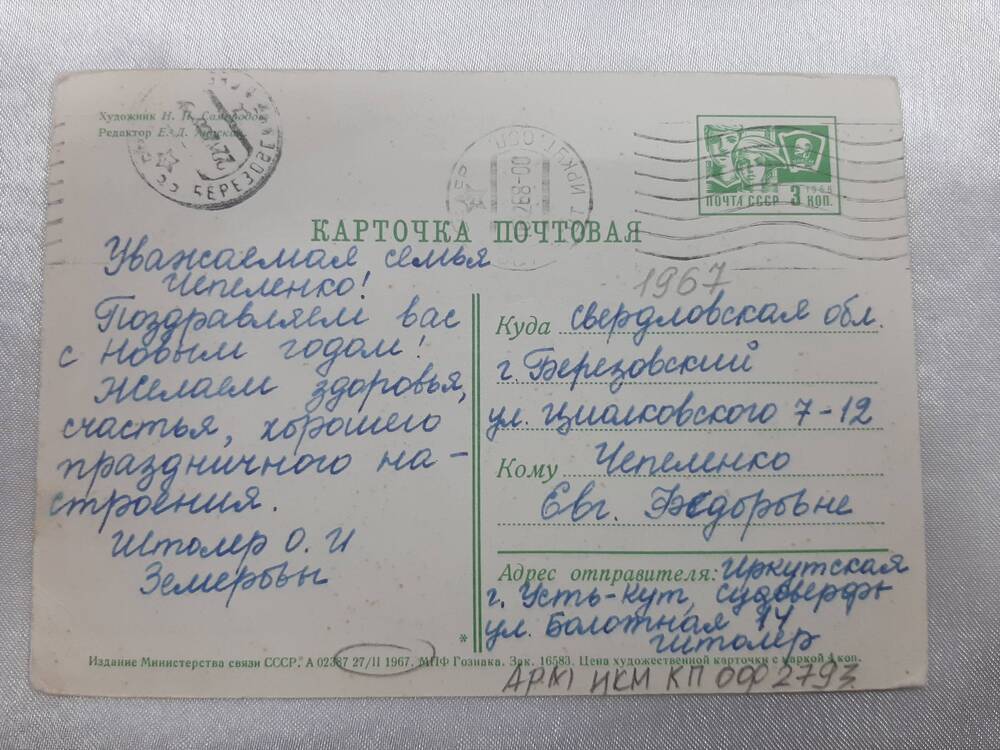 Художник И. П.
Редактор Е. Д.
БЕРЕЗОВ
ПОЧТА СССР 3 КОП.
1966
КАРТОЧКА ПОЧТОВАЯ
Уважаемая семья
Чепеленко!
Поздравляем вас
с Новым годом!
Желаем здоровья,
счастья, хорошего
праздничного на-
строения.
Штолер О. И
1967
Куда свердловская обл.
г. Березовский
ул. Циолковского 7-12
Кому Чепеленко
Евг. Федоровне
Адрес отправителя: Иркутская
г. Усть-Кут, судоверфь
ул. Болотная 14
Штолер
*
Издание Министерства связи СССР. А 02387 27/II 1967. МПФ Гознака. Зак. 16583. Цена художественной карточки с маркой 4 коп.
АРМ ИКМ КП 0002793